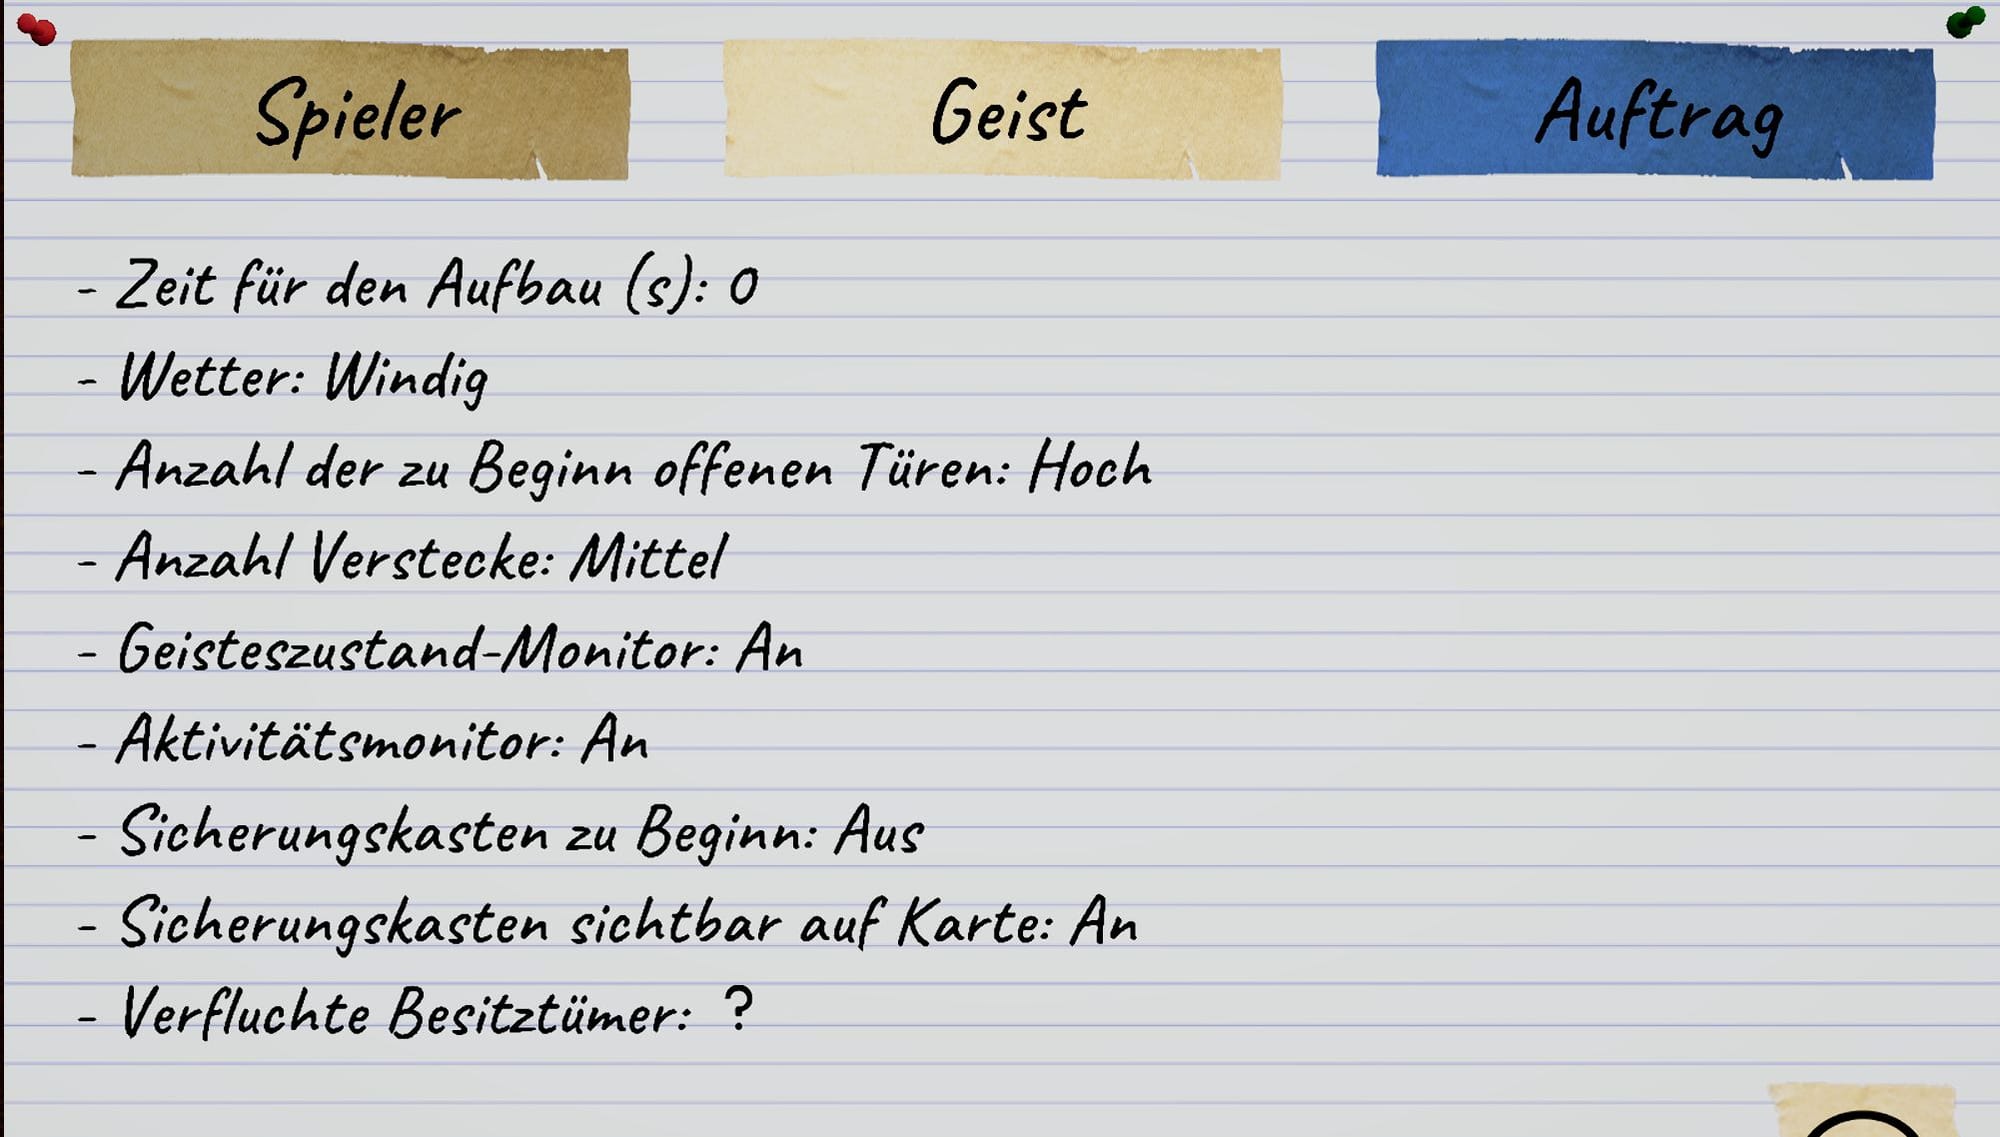 Spieler
Geist
Auftrag
- Zeit für den Aufbau (s): 0
- Wetter: Windig
- Anzahl der zu Beginn offenen Türen: Hoch
- Anzahl Verstecke: Mittel
- Geisteszustand-Monitor: An
- Aktivitätsmonitor: An
- Sicherungskasten zu Beginn: Aus
- Sicherungskasten sichtbar auf Karte: An
- Verfluchte Besitztümer: ?